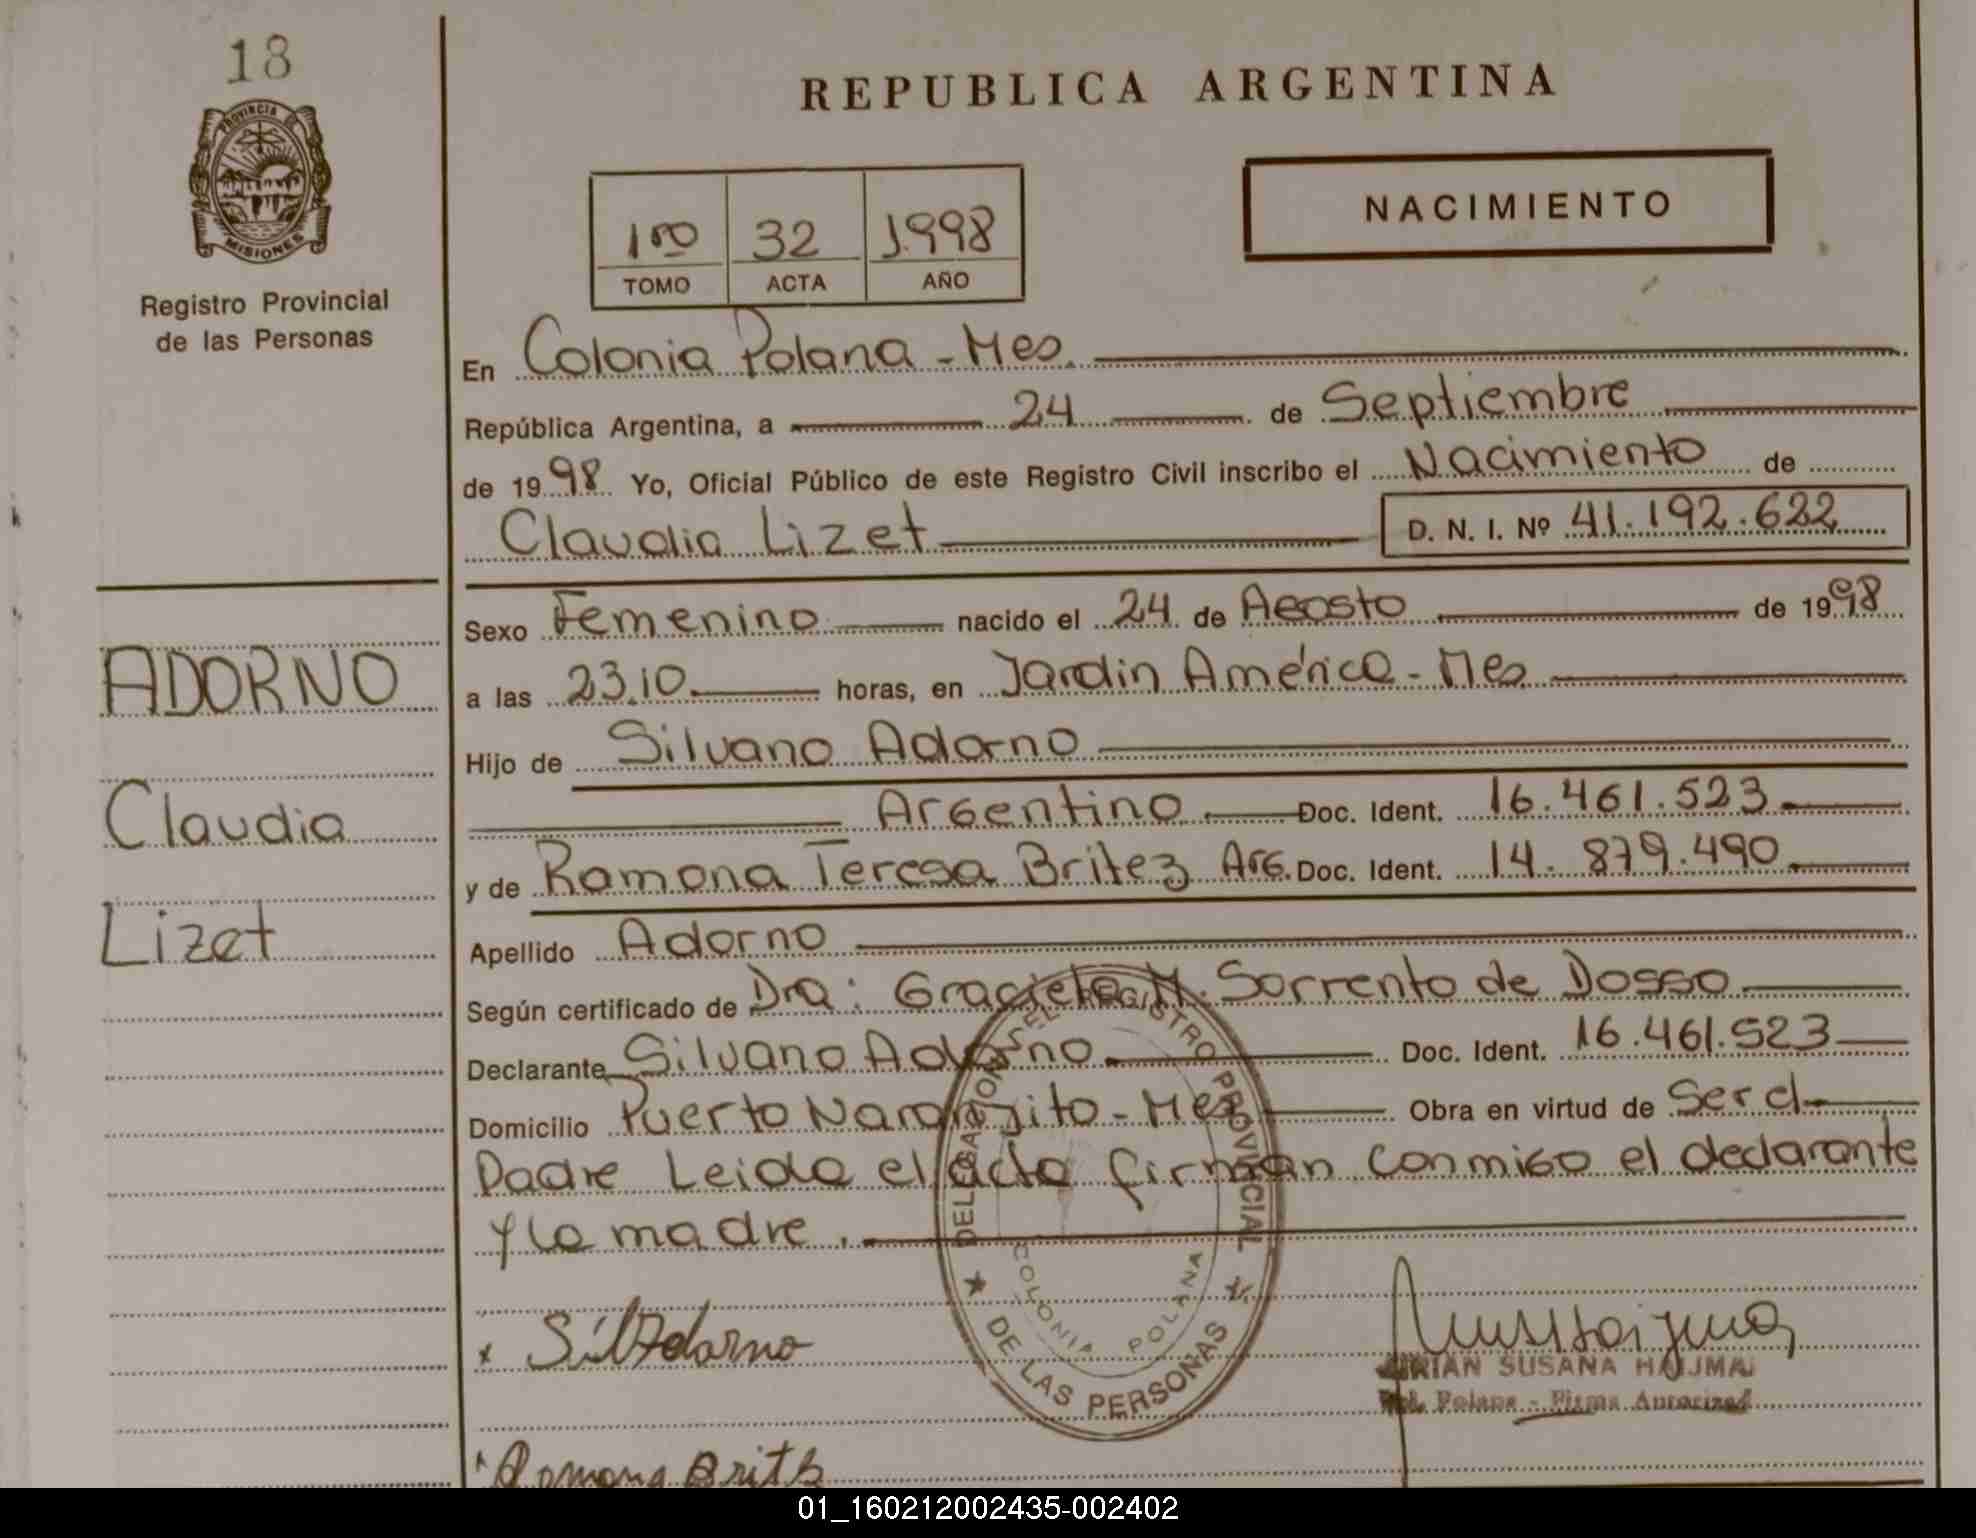 18
PROVINCIA DE
MISIONES
Registro Provincial
de las Personas
REPUBLICA ARGENTINA
1ro 32 1998
TOMO ACTA AÑO
NACIMIENTO
En Colonia Polana - Mes.
República Argentina, a 24 de Septiembre
de 1998 Yo, Oficial Público de este Registro Civil inscribo el Nacimiento de
Claudia Lizet D. N. I. Nº 41.192.622
Sexo Femenino nacido el 24 de Agosto de 1998
a las 23.10 horas, en Jardin América - Mes
Hijo de Silvano Adorno
Argentino Doc. Ident. 16.461.523
y de Ramona Teresa Britez Arg. Doc. Ident. 14.879.490
Apellido Adorno
Según certificado de Dra: Graciela M. Sorrento de Dosso
Declarante Silvano Adorno Doc. Ident. 16.461.523
Domicilio Puerto Naranjito - Mes Obra en virtud de Ser el
Padre Leida el acta firman conmigo el declarante
y la madre.
ADORNO
Claudia
Lizet
DELEGACION DEL REGISTRO PROVINCIAL
DE LAS PERSONAS
COLONIA POLANA
x Sil Adorno
SUSANA
Polana - Firma
Ramona Brit
01_160212002435-002402